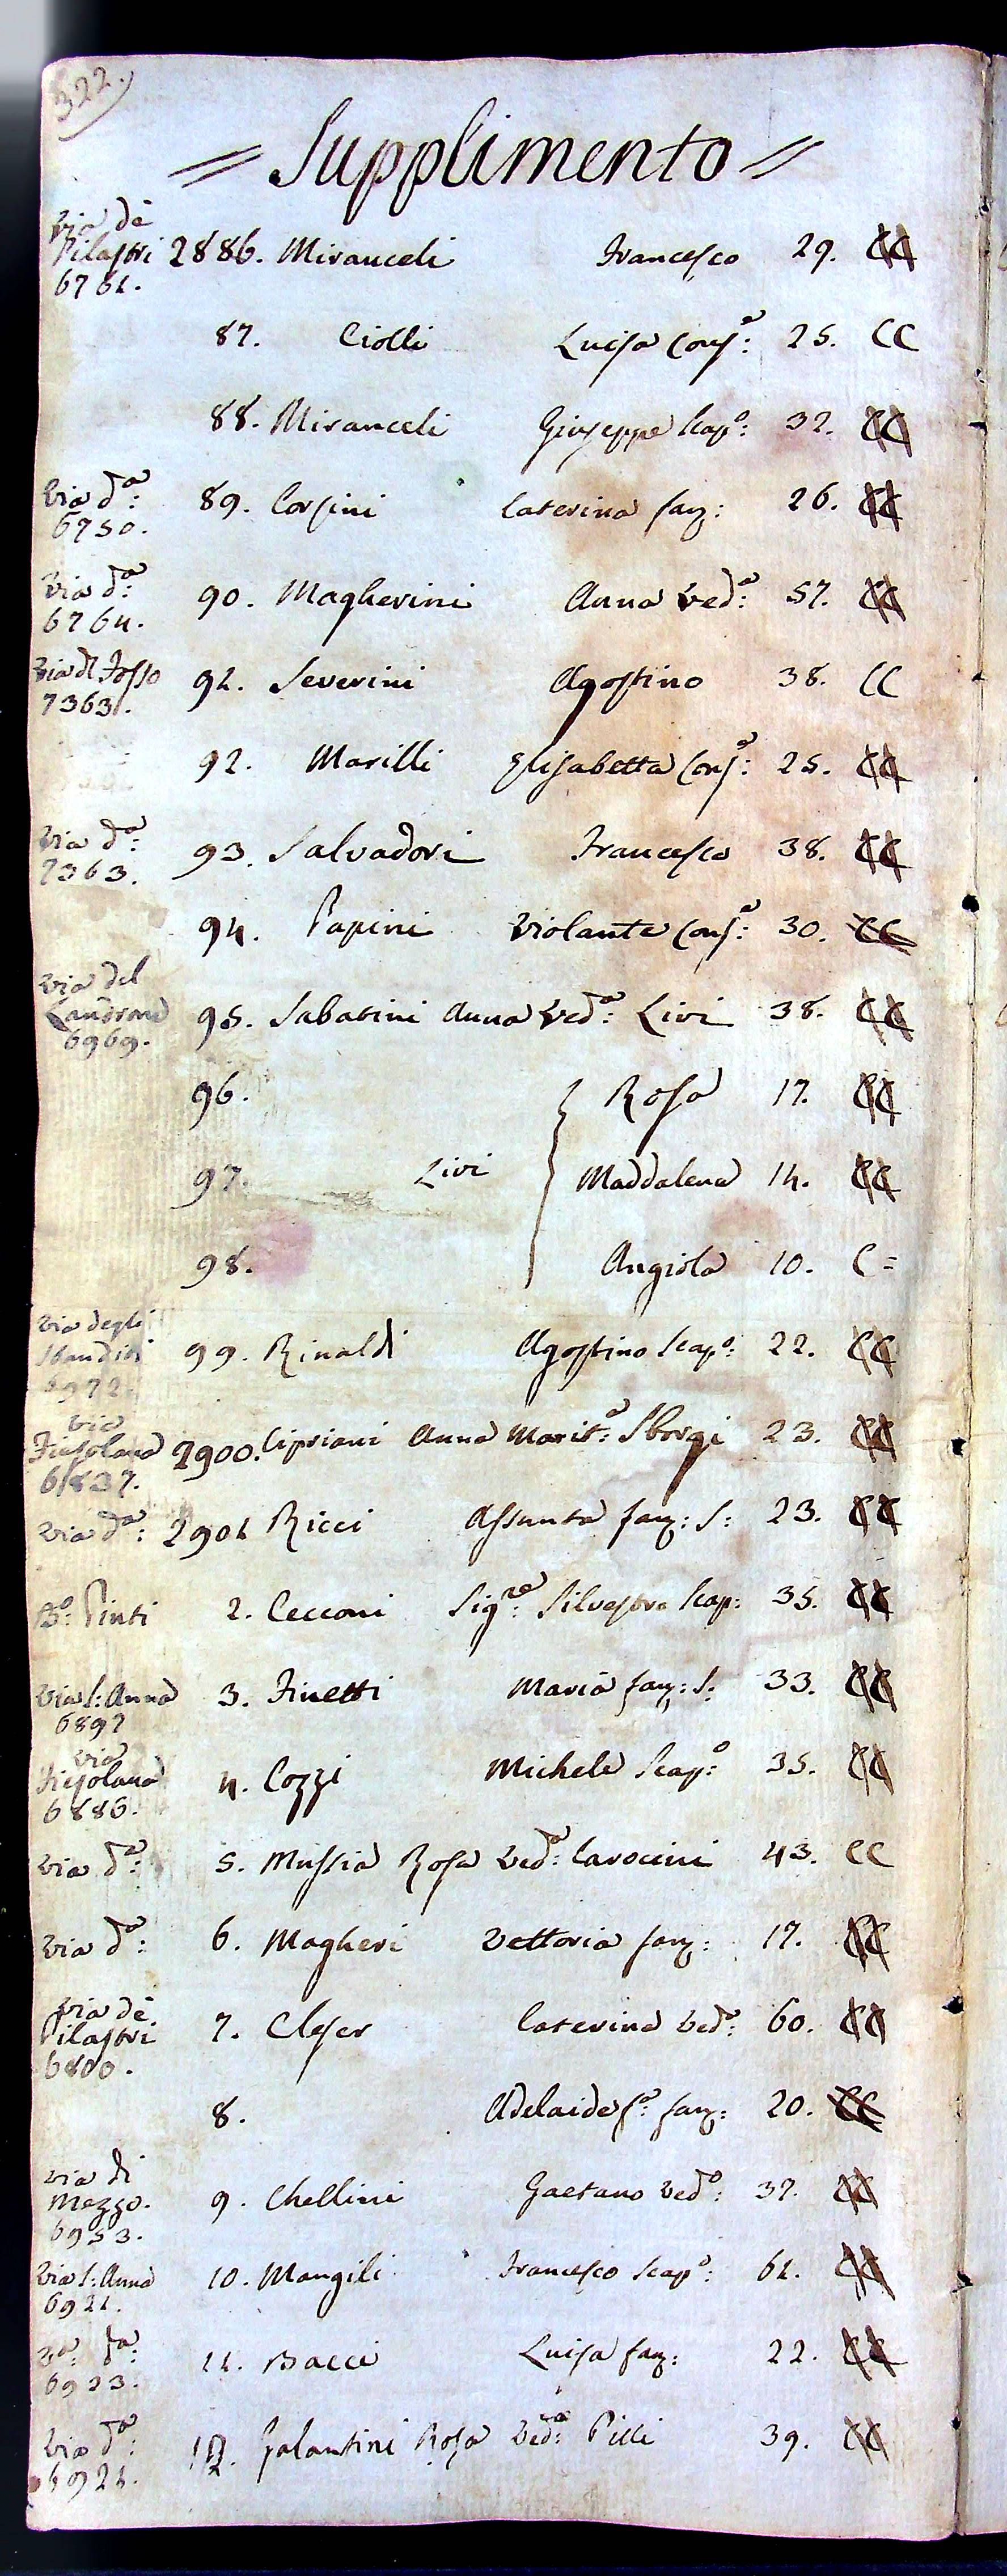 322.
= Supplimento =
Via de' Pilastri 6761. 2886. Miranceli Francesco 29. CC
87. Ciolli Luisa Cons.ª: 25. CC
88. Miranceli Giuseppe Scap.º: 32. CC
Via d.ª: 6750. 89. Corsini Caterina fan: 26. CC
Via d.ª: 6764. 90. Magherini Anna Ved.ª: 57. CC
Via del Fosso 7363. 91. Severini Agostino 38. CC
92. Marilli Elisabetta Cons.ª: 25. CC
Via d.ª: 7363. 93. Salvadori Francesco 38. CC
94. Papini Violante Cons.ª: 30. CC
Via del 6969. 95. Sabatini Anna Ved.ª: Livi 38. CC
96. Rosa 17. CC
97. Livi { Maddalena 14. CC
98. Angiola 10. C=
Via degli 99. Rinaldi Agostino Scap.º: 22. CC
Via Fiesolana 6837. 2900. Cipriani Anna Marit.ª: Sborgi 23. CC
Via d.ª: 2901 Ricci Assunta fan: S: 23. CC
B.º: Pinti 2. Cecconi Sig.re: Silvestro Scap: 35. CC
Via S: Anna 6897 3. Finetti Maria fan: S: 33. CC
Via Fiesolana 6886. 4. Cozzi Michele Scap.º: 35. CC
Via d.ª: 5. Mussia Rosa Ved.ª: Carocini 43. CC
Via d.ª: 6. Magheri Vettoria fan: 17. CC
Via de' Pilastri 6800. 7. Cleser Caterina Ved.ª: 60. CC
8. Adelaide f.ª: fan: 20. CC
Via di Mezzo. 6953. 9. Chellini Gaetano Ved.º: 37. CC
Via S: Anna 6921. 10. Mangili Francesco Scap.º: 61. CC
V.ª: d.ª: 6923. 11. Bacci Luisa fan: 22. CC
Via d.ª: 6921. 12. Galantini Rosa Ved.ª: Pilli 39. CC